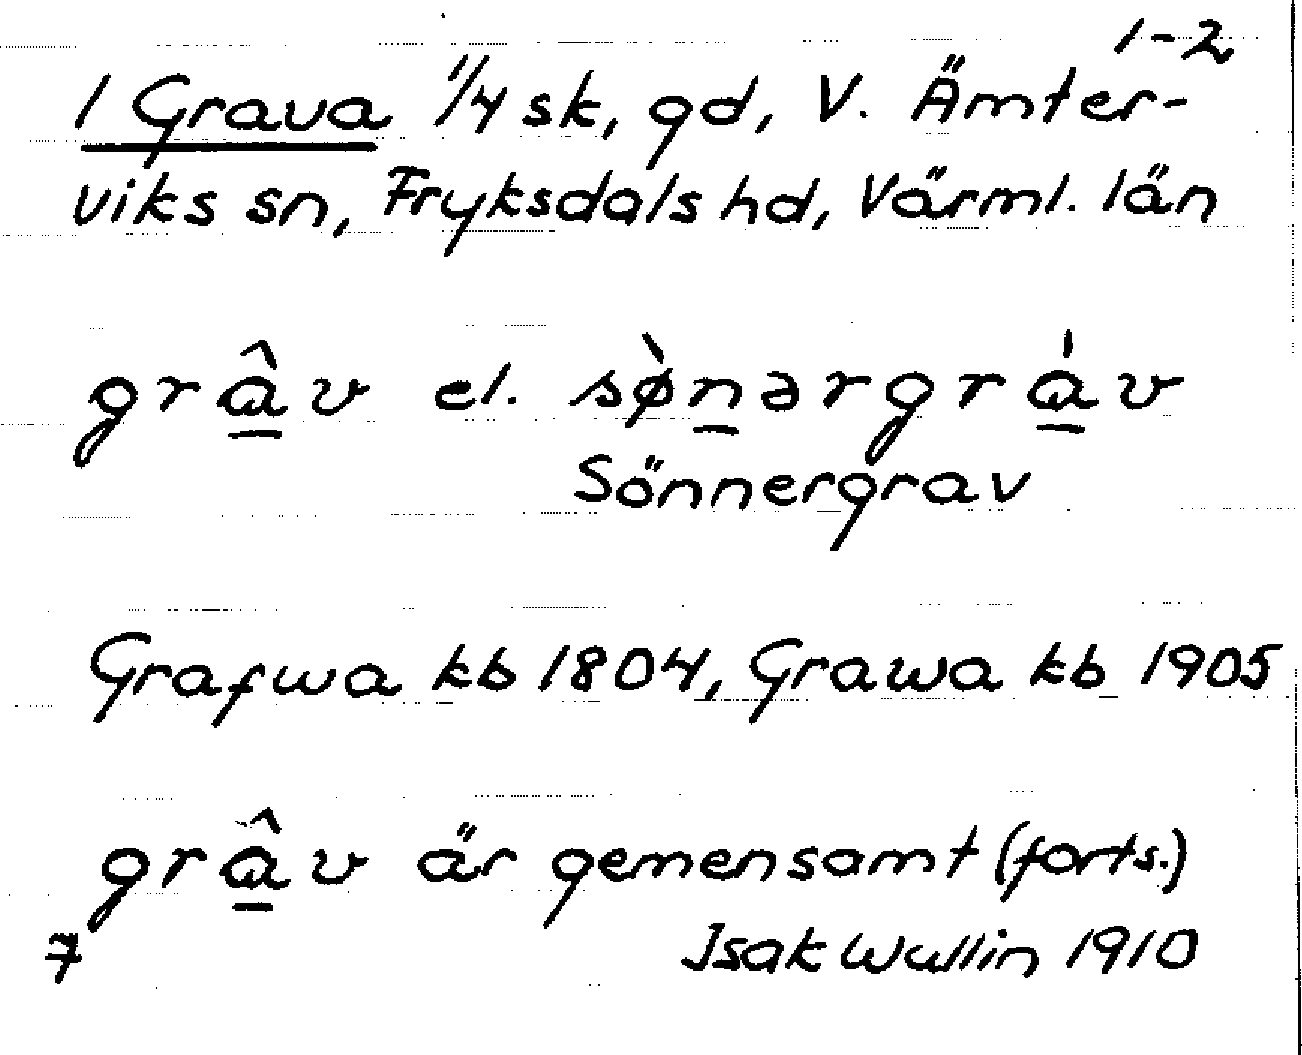 1-2
1 Grava 1/4 sk, gd, V. Ämter-
viks sn, Fryksdals hd, Värml. län
grâ̱v el. sø̀ṉərgrá̱v
Sönnergrav
Grafwa kb 1804, Grawa kb 1905
grâ̱v är gemensamt (forts.)
7 Isak Wullin 1910